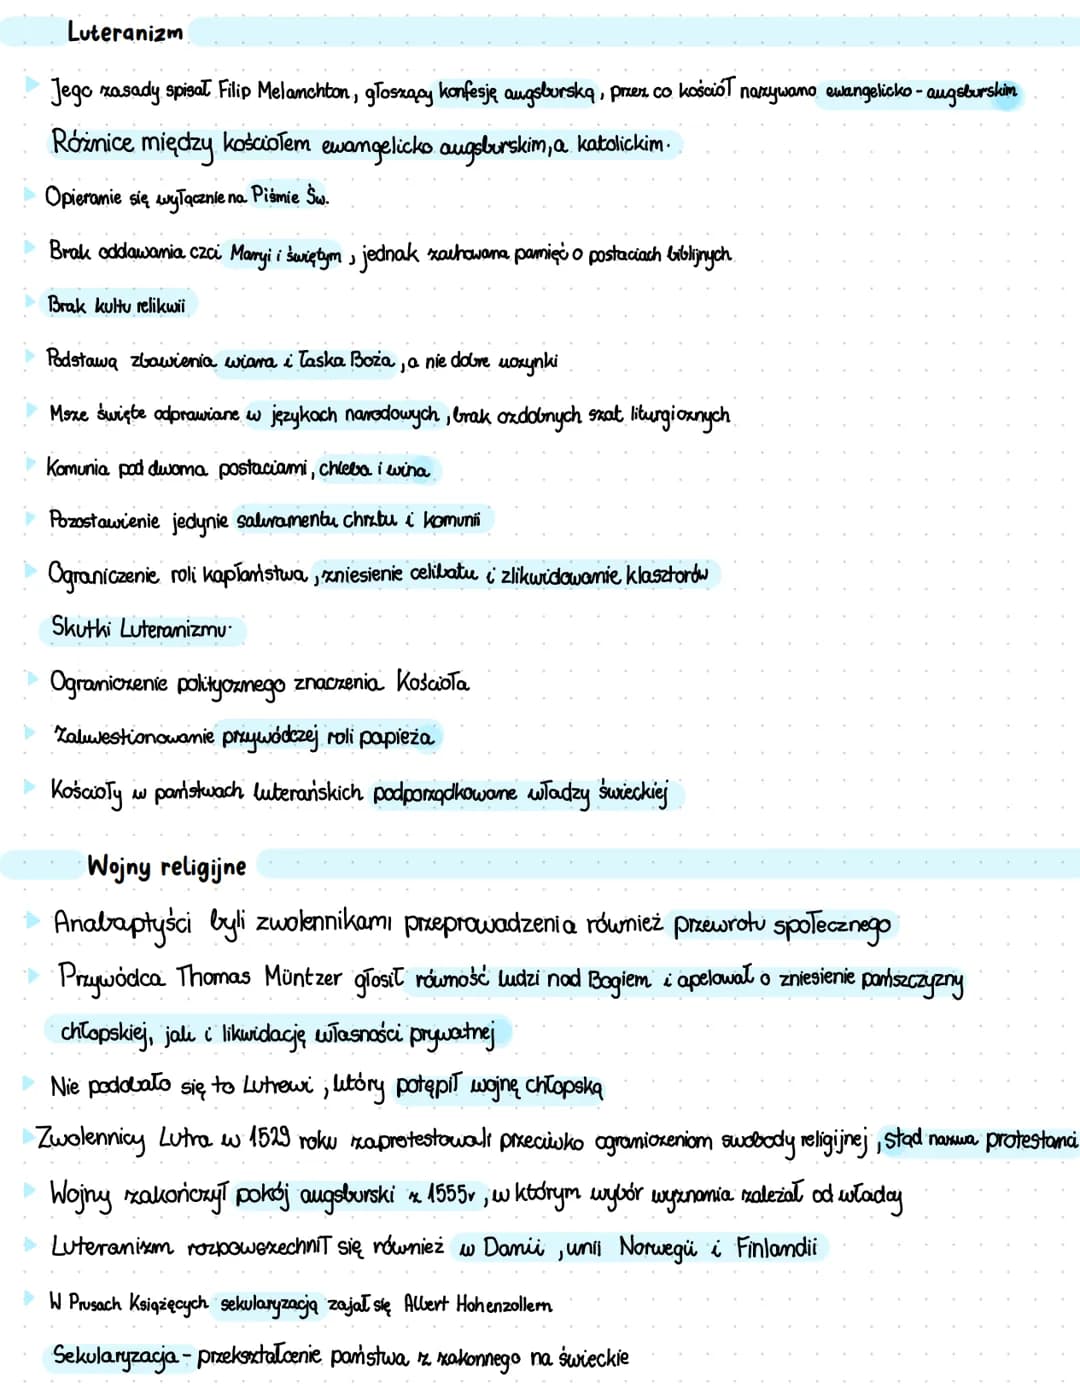 Luteranizm
Jego zasady spisał Filip Melanchton, głoszący konfesję augsburską, przez co kościół nazywano ewangelicko - augsburskim
Różnice między kościołem ewangelicko augsburskim, a katolickim.
Opieranie się wyłącznie na Piśmie Św.
Brak oddawania czci Maryi i świętym, jednak zachowana pamięć o postaciach biblijnych
Brak kultu relikwii
Podstawą zbawienia wiara i łaska Boża, a nie dobre uczynki
Msze święte odprawiane w językach narodowych, brak ozdobnych szat liturgicznych
Komunia pod dwoma postaciami, chleba i wina
Pozostawienie jedynie sakramentu chrztu i komunii
Ograniczenie roli kapłaństwa, zniesienie celibatu i zlikwidowanie klasztorów
Skutki Luteranizmu.
Ograniczenie politycznego znaczenia Kościoła
Zakwestionowanie przywódczej roli papieża
Kościoły w państwach luterańskich podporządkowane władzy świeckiej
Wojny religijne
Anabaptyści byli zwolennikami przeprowadzenia również przewrotu społecznego
Przywódca Thomas Müntzer głosił równość ludzi nad Bogiem i apelował o zniesienie pańszczyzny
chłopskiej, jak i likwidację własności prywatnej
Nie podobało się to Lutrowi, który potępił wojnę chłopską
Zwolennicy Lutra w 1529 roku zaprotestowali przeciwko ograniczeniom swobody religijnej, stąd nazwa protestanci
Wojny zakończył pokój augsburski z 1555r, w którym wybór wyznania zależał od władcy
Luteranizm rozpowszechnił się również w Danii, unii Norwegii i Finlandii
W Prusach Książęcych sekularyzacją zajął się Albert Hohenzollern
Sekularyzacja - przekształcenie państwa z zakonnego na świeckie